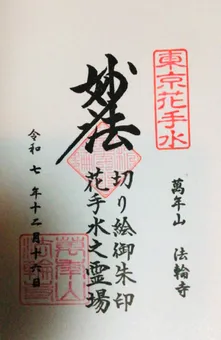 東京花手水
萬年山 法輪寺
切り絵御朱印
花手水之霊場
妙法
令和七年十二月十六日